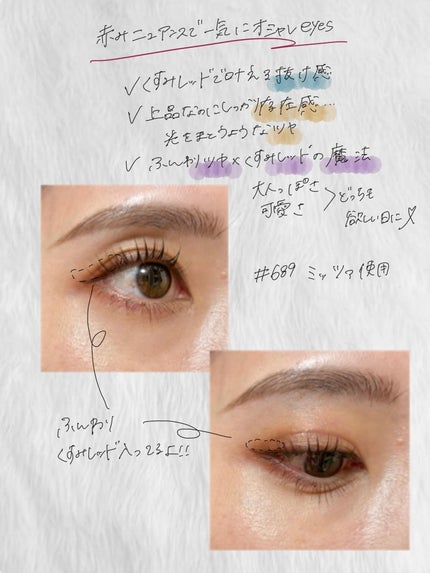 赤みニュアンスで一気にオシャレeyes
✓くすみレッドで叶える抜け感
✓上品なのにしっかり存在感…
光をまとうようなツヤ
✓ふんわりツヤ×くすみレッドの魔法
大人っぽさ
可愛さ
どっちも
欲しい日に♡
#689 ミッツァ使用
ふんわり
くすみレッド入ってるよ!!